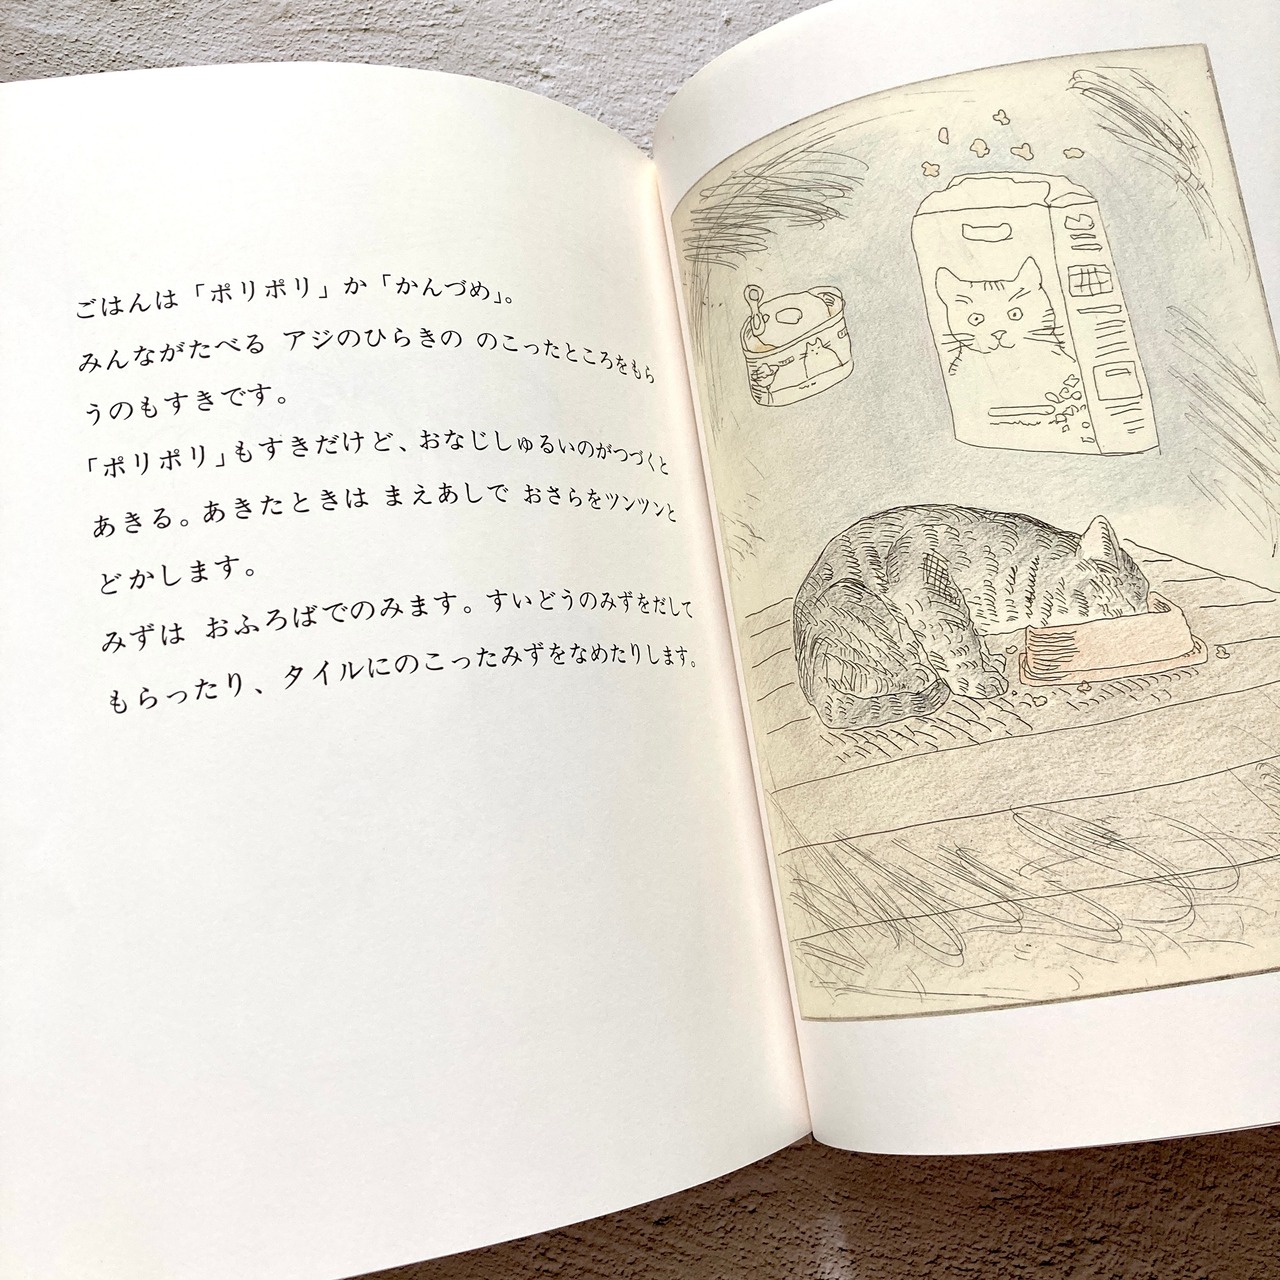 ごはんは「ポリポリ」か「かんづめ」。
みんながたべる アジのひらきの のこったところをもら
うのもすきです。
「ポリポリ」もすきだけど、おなじしゅるいのがつづくと
あきる。あきたときは まえあしで おさらをツンツンと
どかします。
みずは おふろばでのみます。すいどうのみずをだして
もらったり、タイルにのこったみずをなめたりします。